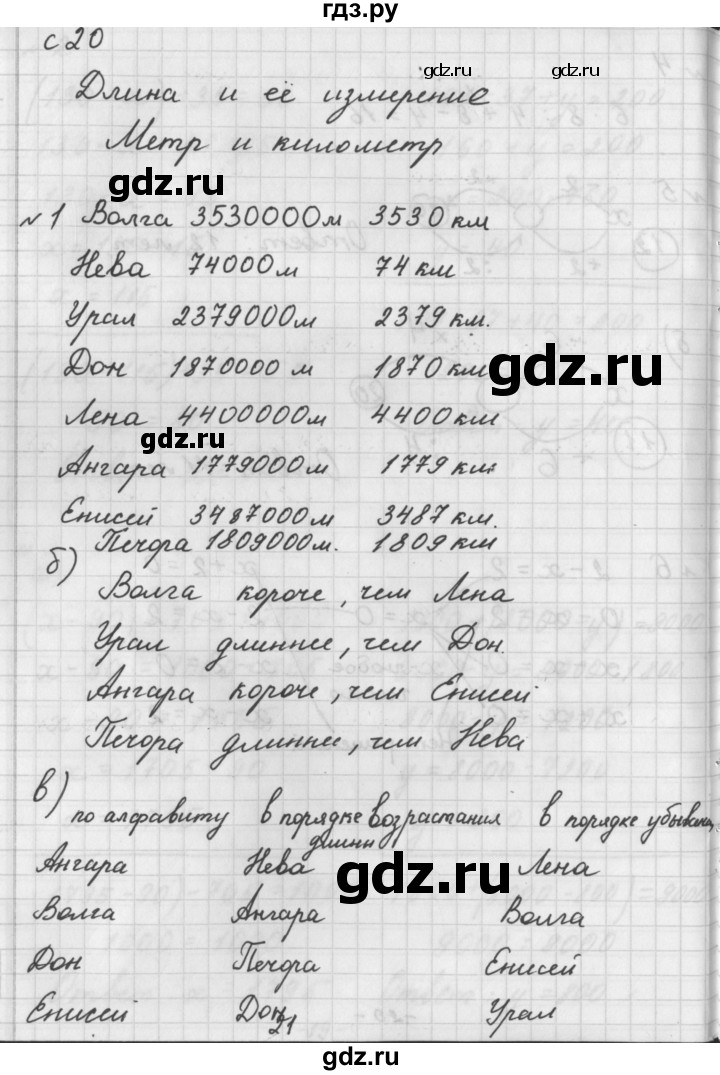 гдз.ру
с 20
gdz.ru gdz.ru
Длина и её измерение
Метр и километр
gdz.ru
№1 Волга 3530000м 3530 км
Нева 74000м 74 км
Урал 2379000м 2379 км.
Дон 1870000 м 1870 км
gdz.ru
Лена 4400000м 4400 км
gdz.ru
Ангара 1779000м 1779 км.
Енисей 3487000м 3487 км.
Печора 1809000м. 1809 км
б)
Волга короче, чем Лена
Урал длиннее, чем Дон.
Ангара короче, чем Енисей
Печора длиннее, чем Нева
в)
по алфавиту в порядке возрастания длины в порядке убывани
Ангара Нева Лена
gdz.ru
Волга Ангара Волга
Дон Печора Енисей
Енисей Дон Урал
21
gdz.ru